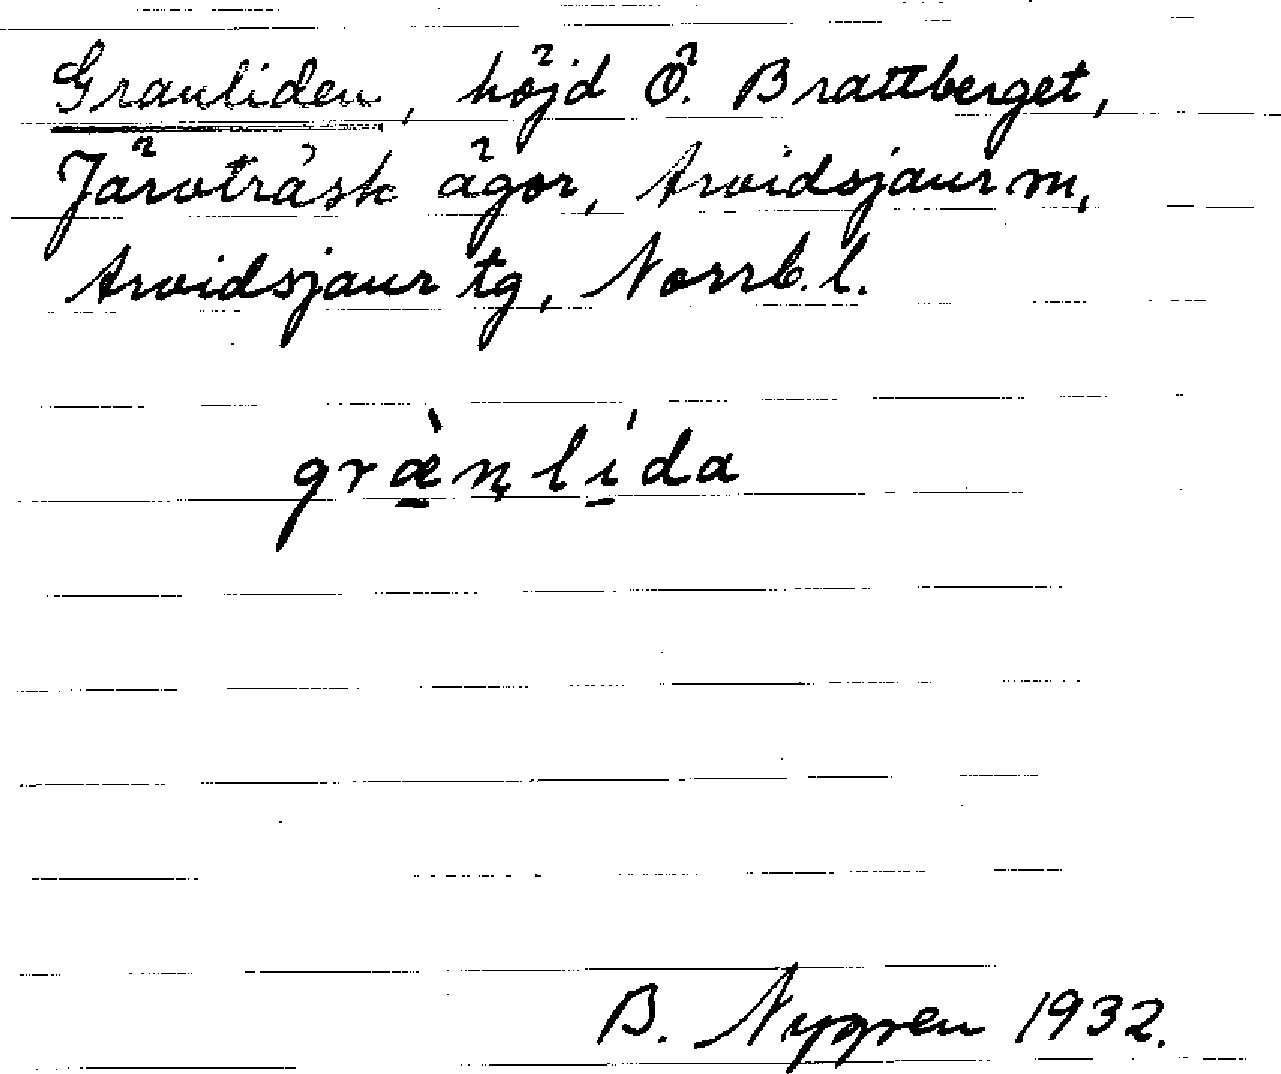 Granliden, höjd Ö. Brattberget,
Järvträsk ägor, Arvidsjaur sn,
Arvidsjaur tg, Norrb. l.
græ̀nlída
B. Nygren 1932.